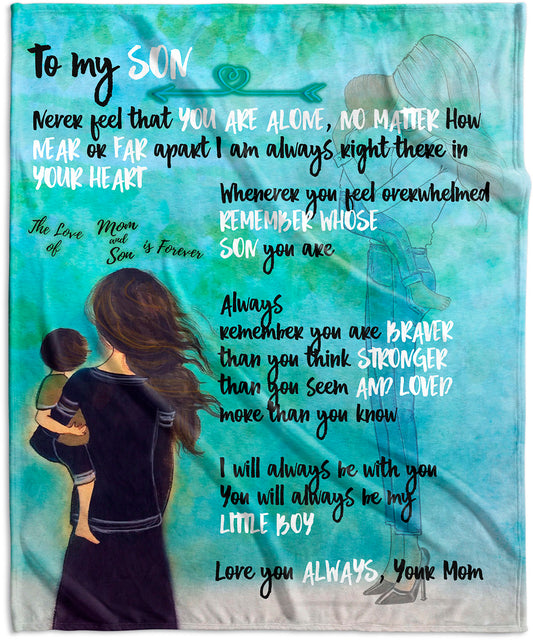 To my SON
Never feel that YOU ARE ALONE, NO MATTER How
NEAR or FAR apart I am always right there in
YOUR HEART
Whenever you feel overwhelmed
REMEMBER WHOSE
SON you are
The Love of Mom and Son is Forever
Always
remember you are BRAVER
than you think STRONGER
than you seem AND LOVED
more than you know
I will always be with you
You will always be my
LITTLE BOY
Love you ALWAYS, Your Mom